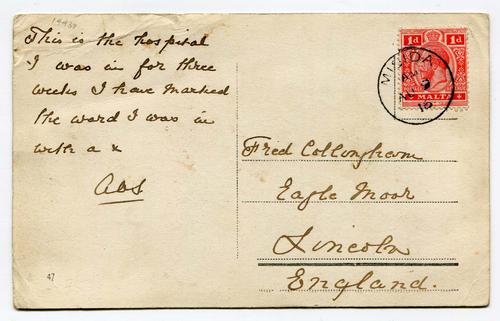 This is the hospital
I was in for three
weeks I have marked
the ward I was in
with a x
1d 1d
MALTA
MISIDA
AM
16
Fred Collingham
Eagle Moor
Lincoln
England.
47